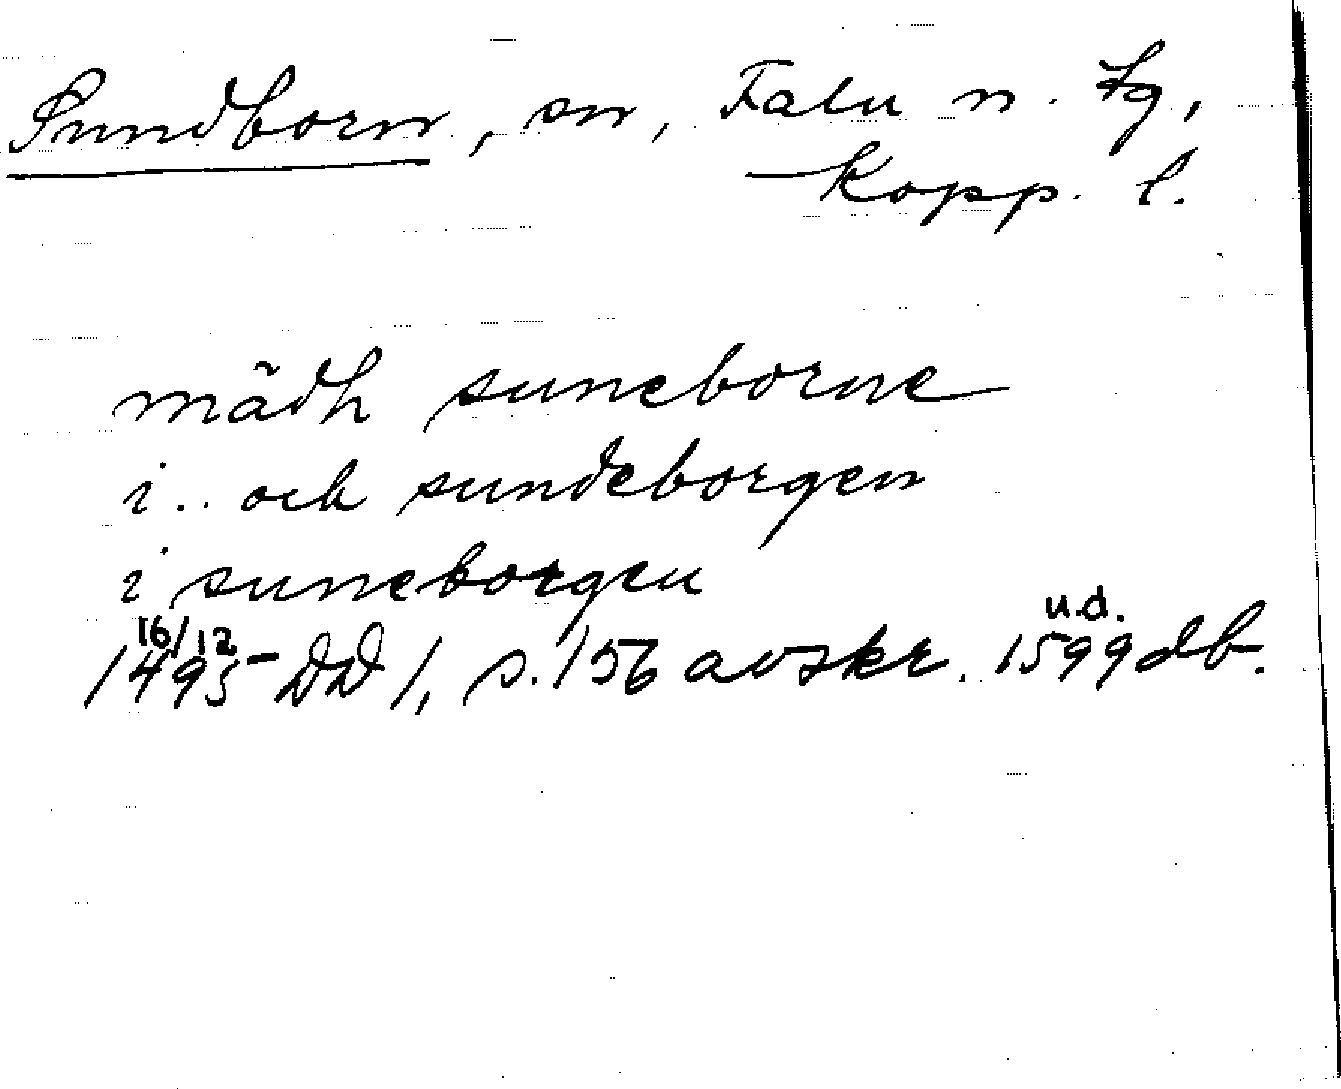 Sundborn, sn, Falu n. tg,
Kopp. l.
mädh suneborne
i .. och sundeborgen
i suneborgen
16/12 u.d.
1495 DD 1, s. 156 avskr. 1599 db.